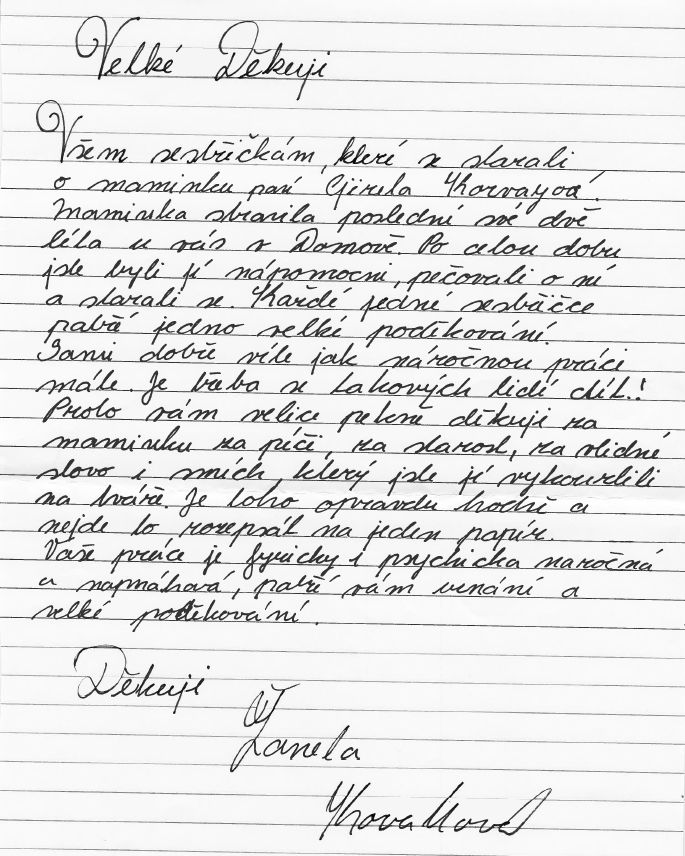 Velké Děkuji
Všem sestřičkám, které se starali
o maminku paní Gizela Horvayová.
Maminka strávila poslední své dvě
léta u vás v Domově. Po celou dobu
jste byli jí nápomocni, pečovali o ní
a starali se. Každé jedné sestřičce
patří jedno velké poděkování.
Sami dobře víte jak náročnou práci
máte. Je třeba si takových lidí ctít.!
Proto vám velice pekně děkuji za
maminku za péči, za starost, za vlidné
slovo i smích, který jste jí vykouzlili
na tváře. Je toho opravdu hodně a
nejde to rozepsát na jeden papír.
Vaše práce je fyzicky i psychicka naročná
a napmáhavá, patří vám uznání a
velké poděkování.
Děkuji
Žaneta